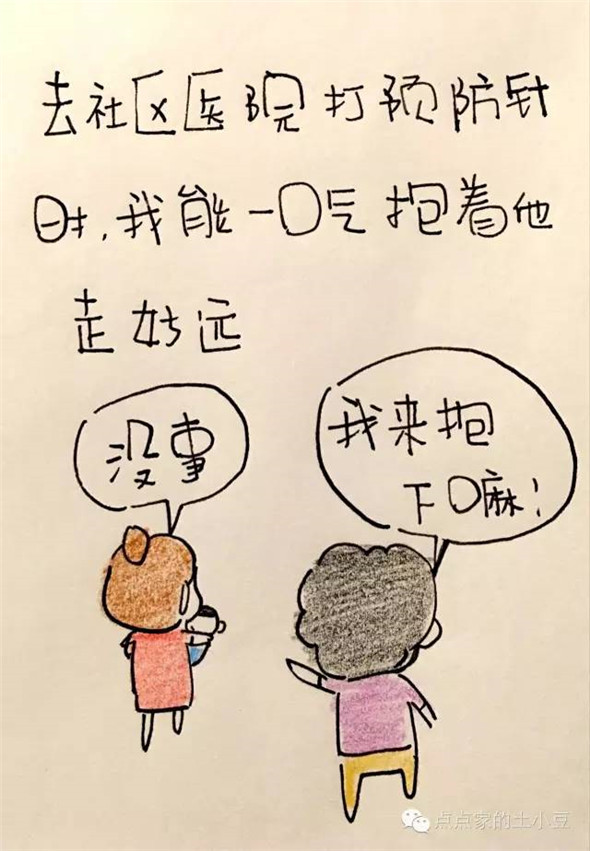 去社区医院打预防针
时,我能一口气抱着他
走好远
没事
我来抱
下口嘛!
点点家的土小豆